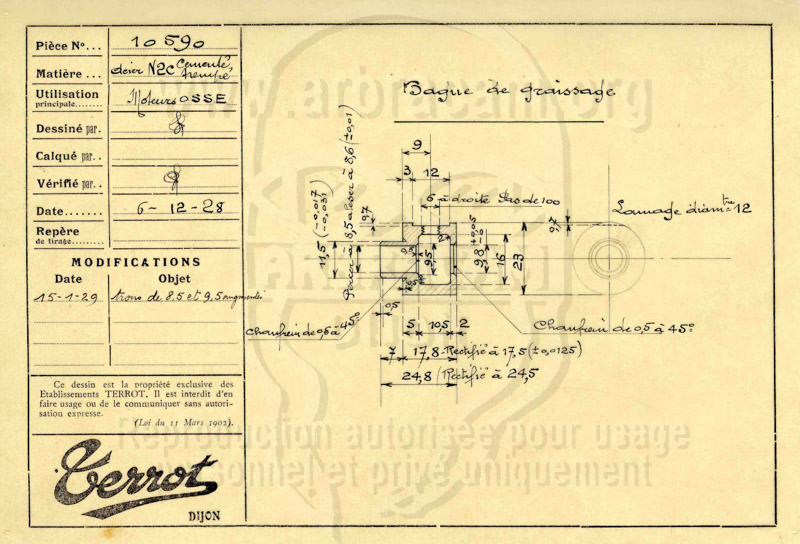 Pièce No... 10590
Matière... Acier N2C Cementé, trempé
Utilisation
principale........ Moteurs OSSE
Dessiné par.
Calqué par..
Vérifié par..
Date....... 6-12-28
Repère
de tirage.......
MODIFICATIONS
Date Objet
15-1-29 trous de 8,5 et 9,5 augmentés
Ce dessin est la propriété exclusive des
Etablissements TERROT. Il est interdit d'en
faire usage ou de le communiquer sans autori-
sation expresse.
(Loi du 11 Mars 1902).
Terrot
DIJON
www.arbracam.org
Bague de graissage
9
3 12
6 à droite Pas de 100
Lamage diamtre 12
0,7
0,7
11,5 (-0,017 -0,034)
Percer à 8,5 aleser à 8,6 (±0,01)
9,5
9,8 +0,05 -0
16
23
2
0,5
0,5
Chanfrein de 0,5 à 45°
Chanfrein de 0,5 à 45°
5 10,5 2
7 17,8 - Rectifié à 17,5 (±0,0125)
24,8 (Rectifié à 24,5
Reproduction autorisée pour usage
personnel et privé uniquement